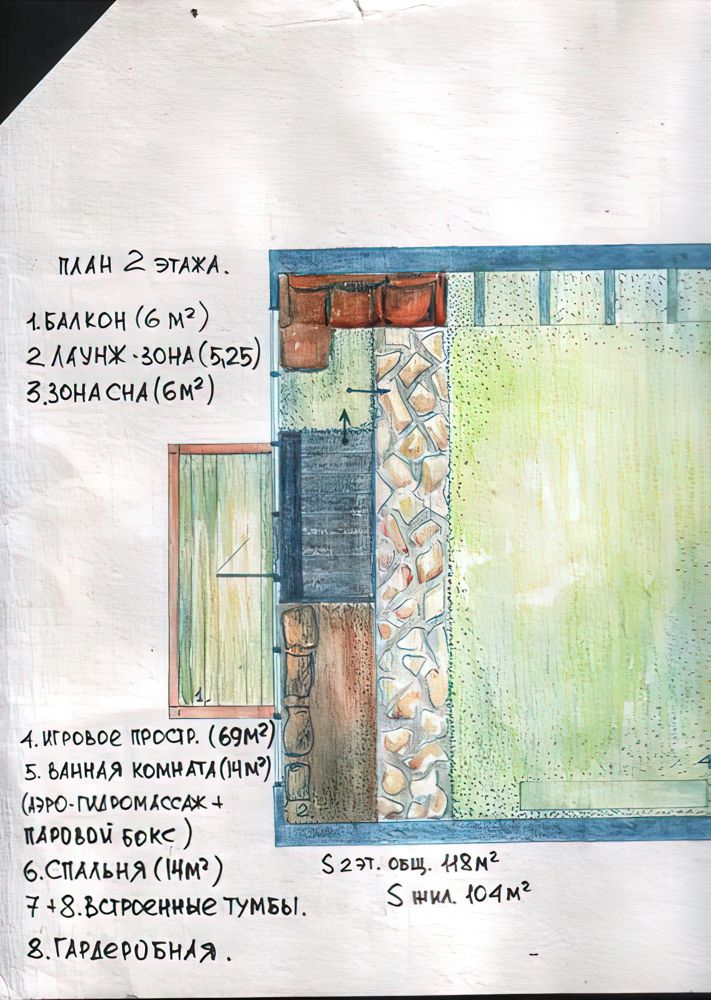 ПЛАН 2 ЭТАЖА.
1.БАЛКОН (6 м²)
2 ЛАУНЖ-ЗОНА (5,25)
3.ЗОНА СНА (6м²)
1
4.ИГРОВОЕ ПРОСТР. (69м²)
5. ВАННАЯ КОМНАТА (14м²)
(АЭРО-ГИДРОМАССАЖ +
ПАРОВОЙ БОКС)
2
4
6.СПАЛЬНЯ (14м²)
7+8.ВСТРОЕННЫЕ ТУМБЫ.
8.ГАРДЕРОБНАЯ.
S 2 ЭТ. ОБЩ. 118м²
S ЖИЛ. 104м²